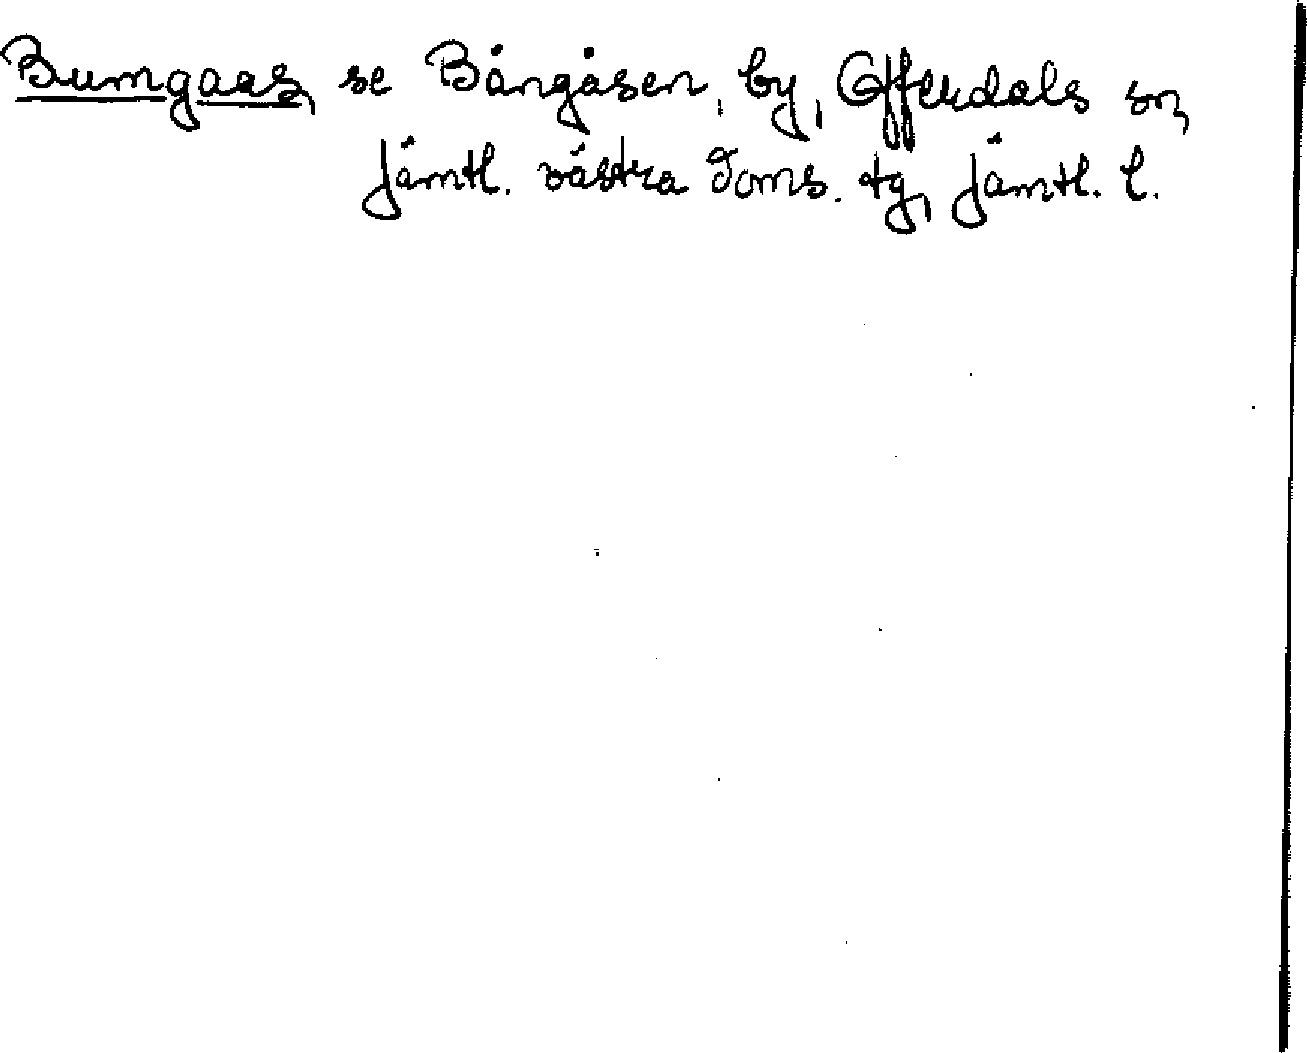 Bumgaas, se Bångåsen, by, Offerdals sn,
Jämtl. västra doms. tg, Jämtl. l.